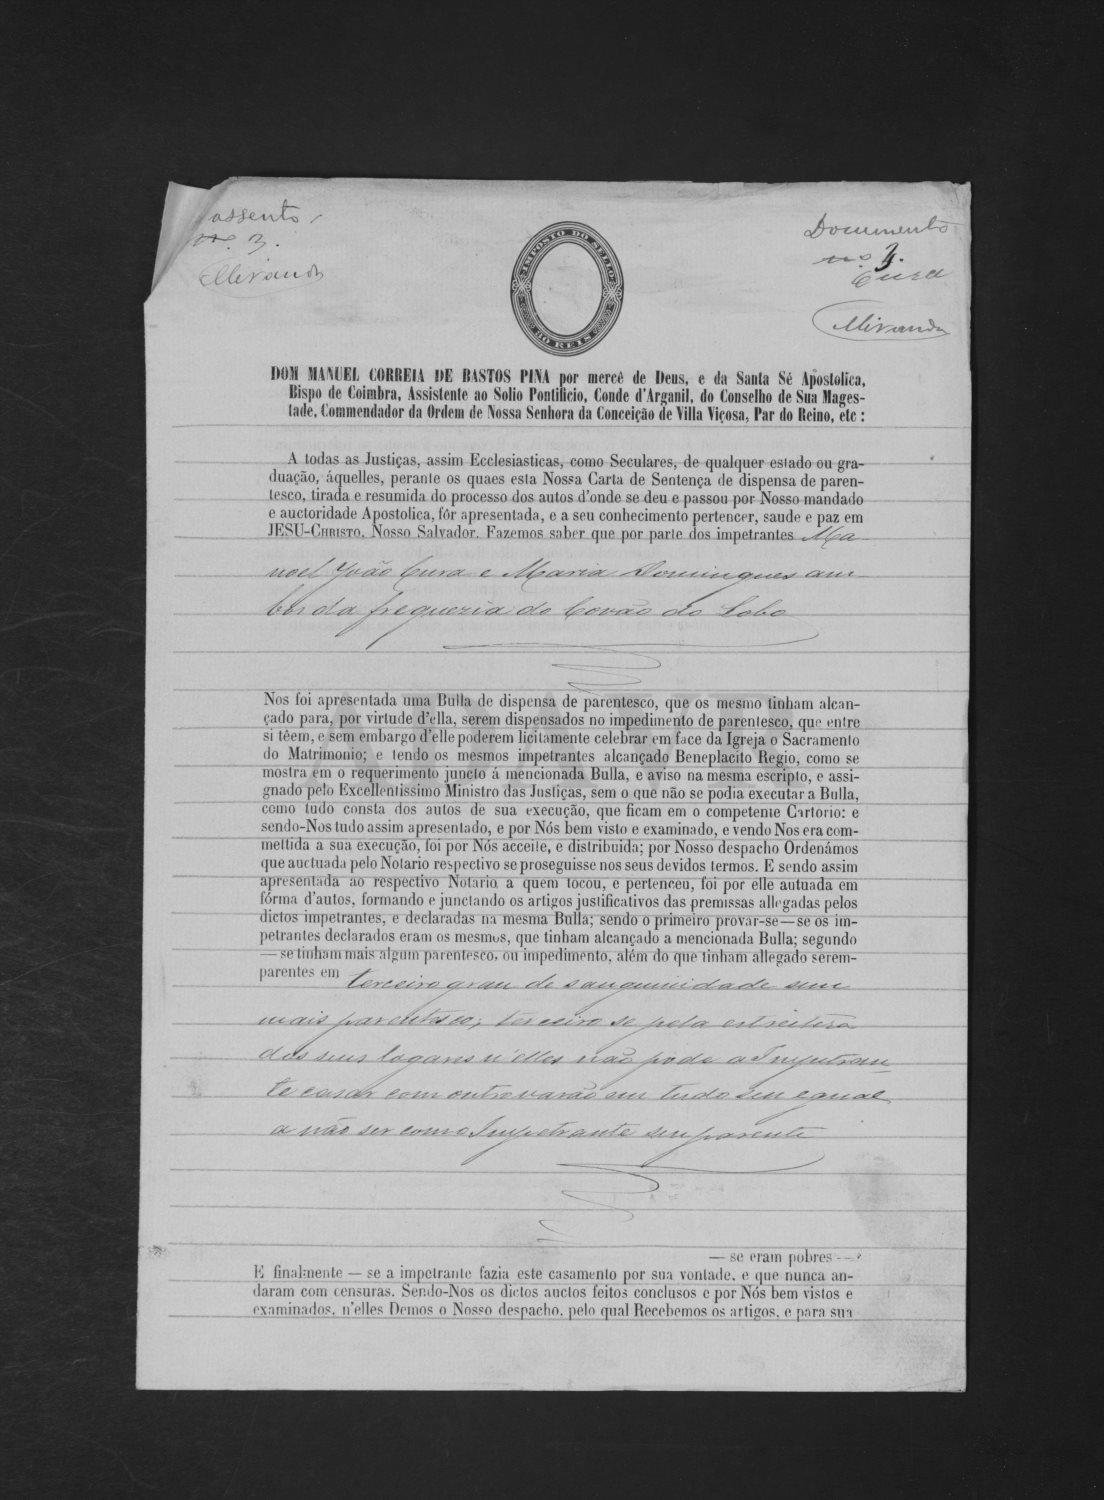 assento
nº. 3.
Miranda
Documento
nº 3.
Cura
Miranda
IMPOSTO DO SELLO
REIS
DOM MANUEL CORREIA DE BASTOS PINA por mercê de Deus, e da Santa Sé Apostolica,
Bispo de Coimbra, Assistente ao Solio Pontificio, Conde d'Arganil, do Conselho de Sua Mages-
tade, Commendador da Ordem de Nossa Senhora da Conceição de Villa Viçosa, Par do Reino, etc :
A todas as Justiças, assim Ecclesiasticas, como Seculares, de qualquer estado ou gra-
duação, áquelles, perante os quaes esta Nossa Carta de Sentença de dispensa de paren-
tesco, tirada e resumida do processo dos autos d'onde se deu e passou por Nosso mandado
e auctoridade Apostolica, fôr apresentada, e a seu conhecimento pertencer, saude e paz em
JESU-CHRISTO, Nosso Salvador. Fazemos saber que por parte dos impetrantes Ma-
noel João Cura e Maria Domingues am-
bos da freguezia do Covão do Lobo
Nos foi apresentada uma Bulla de dispensa de parentesco, que os mesmo tinham alcan-
çado para, por virtude d'ella, serem dispensados no impedimento de parentesco, que entre
si têem, e sem embargo d'elle poderem licitamente celebrar em face da Igreja o Sacramento
do Matrimonio; e tendo os mesmos impetrantes alcançado Beneplacito Regio, como se
mostra em o requerimento juncto á mencionada Bulla, e aviso na mesma escripto, e assi-
gnado pelo Excellentissimo Ministro das Justiças, sem o que não se podia executar a Bulla,
como tudo consta dos autos de sua execução, que ficam em o competente Cartorio: e
sendo-Nos tudo assim apresentado, e por Nós bem visto e examinado, e vendo Nos era com-
mettida a sua execução, foi por Nós acceite, e distribuida; por Nosso despacho Ordenámos
que auctuada pelo Notario respectivo se proseguisse nos seus devidos termos. E sendo assim
apresentada ao respectivo Notario a quem tocou, e pertenceu, foi por elle autuada em
fórma d'autos, formando e junctando os artigos justificativos das premissas allegadas pelos
dictos impetrantes, e declaradas na mesma Bulla; sendo o primeiro provar-se — se os im-
petrantes declarados eram os mesmos, que tinham alcançado a mencionada Bulla; segundo
— se tinham mais algum parentesco, ou impedimento, além do que tinham allegado serem-
parentes em terceiro grau de sanguinidade sem
mais parentesco; terceiro se pela estreiteza
dos seus logares n'elles não pode a Impetran-
te casar com outro varão em tudo seu egual
a não ser com o Impetrante seu parente
— se eram pobres —
E finalmente — se a impetrante fazia este casamento por sua vontade, e que nunca an-
daram com censuras. Sendo-Nos os dictos auctos feitos conclusos e por Nós bem vistos e
examinados, n'elles Demos o Nosso despacho, pelo qual Recebemos os artigos, e para sua